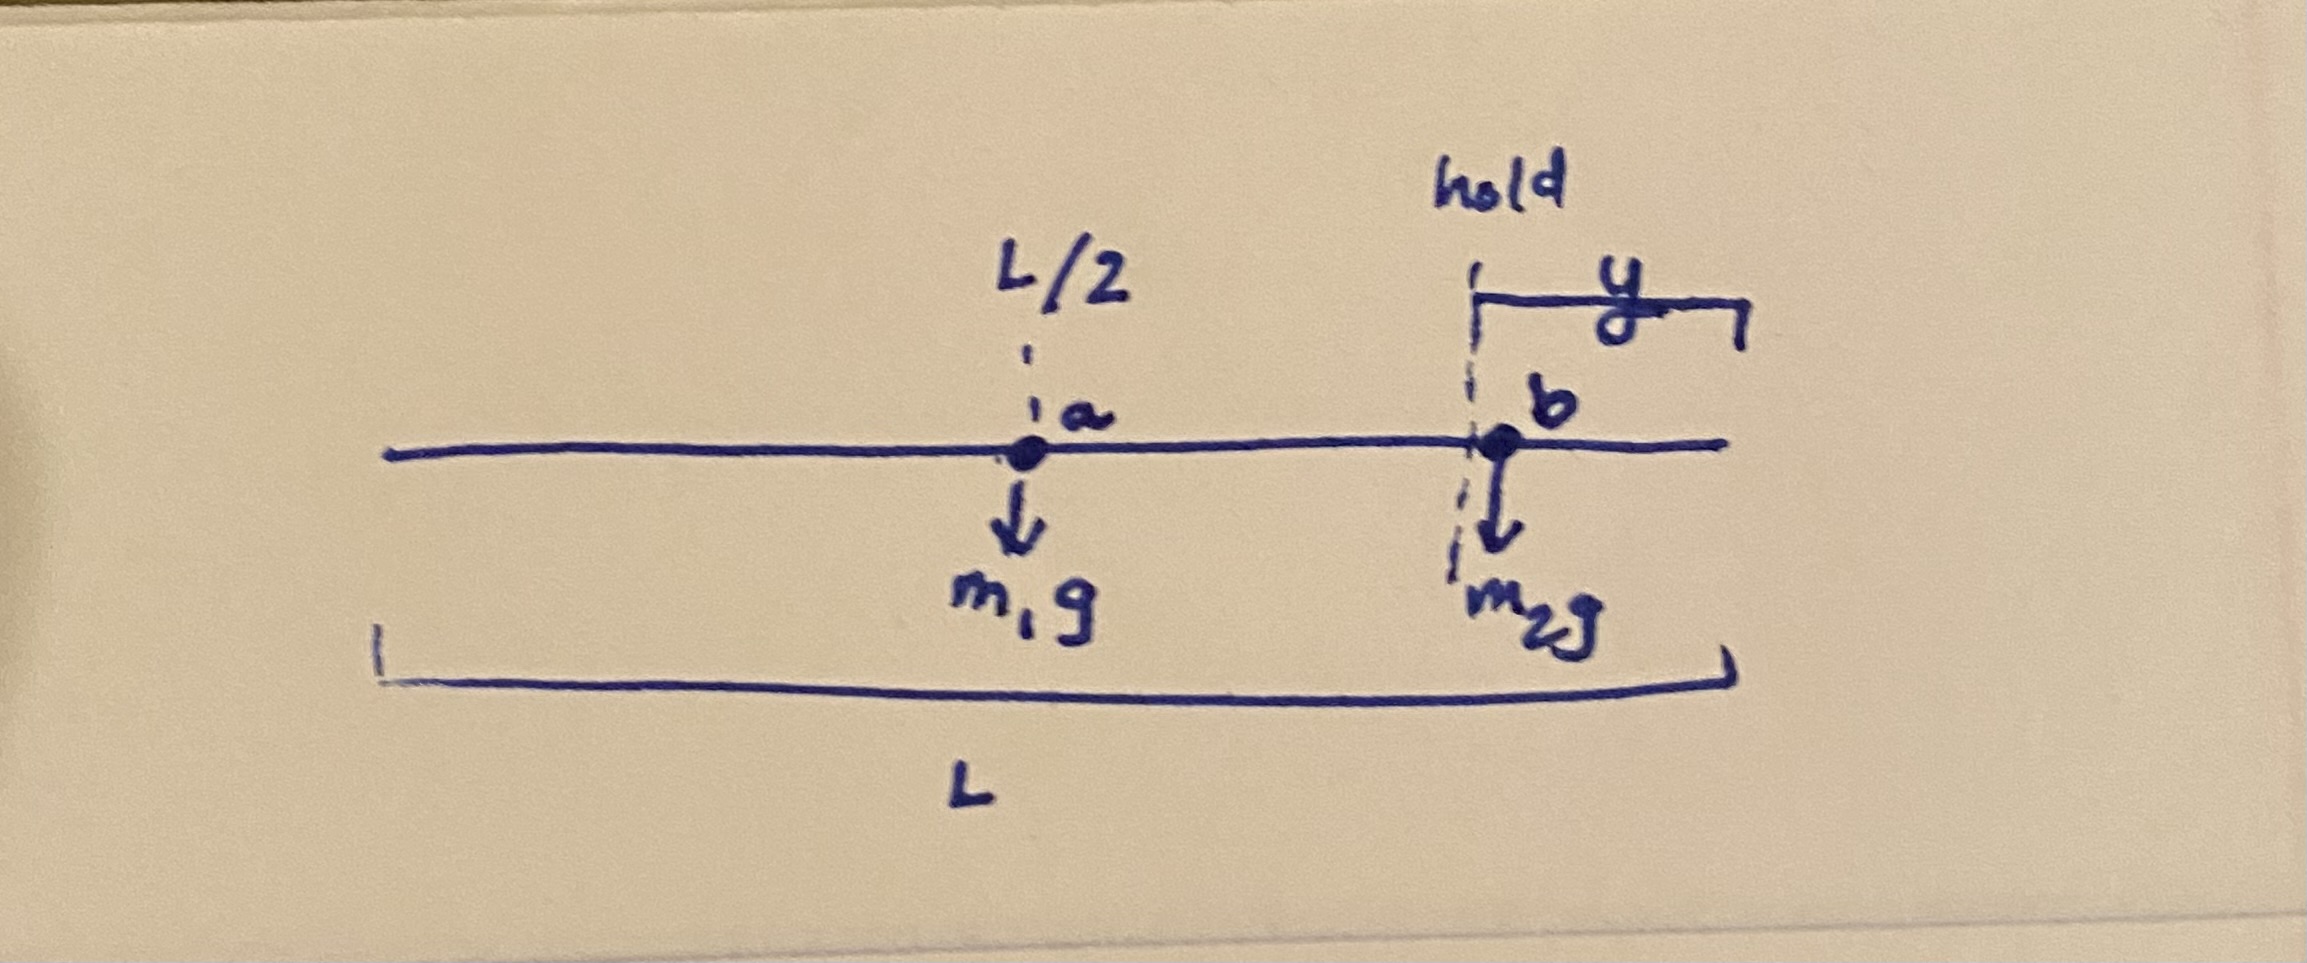 hold
L/2
y
a
b
m₁g
m₂g
L